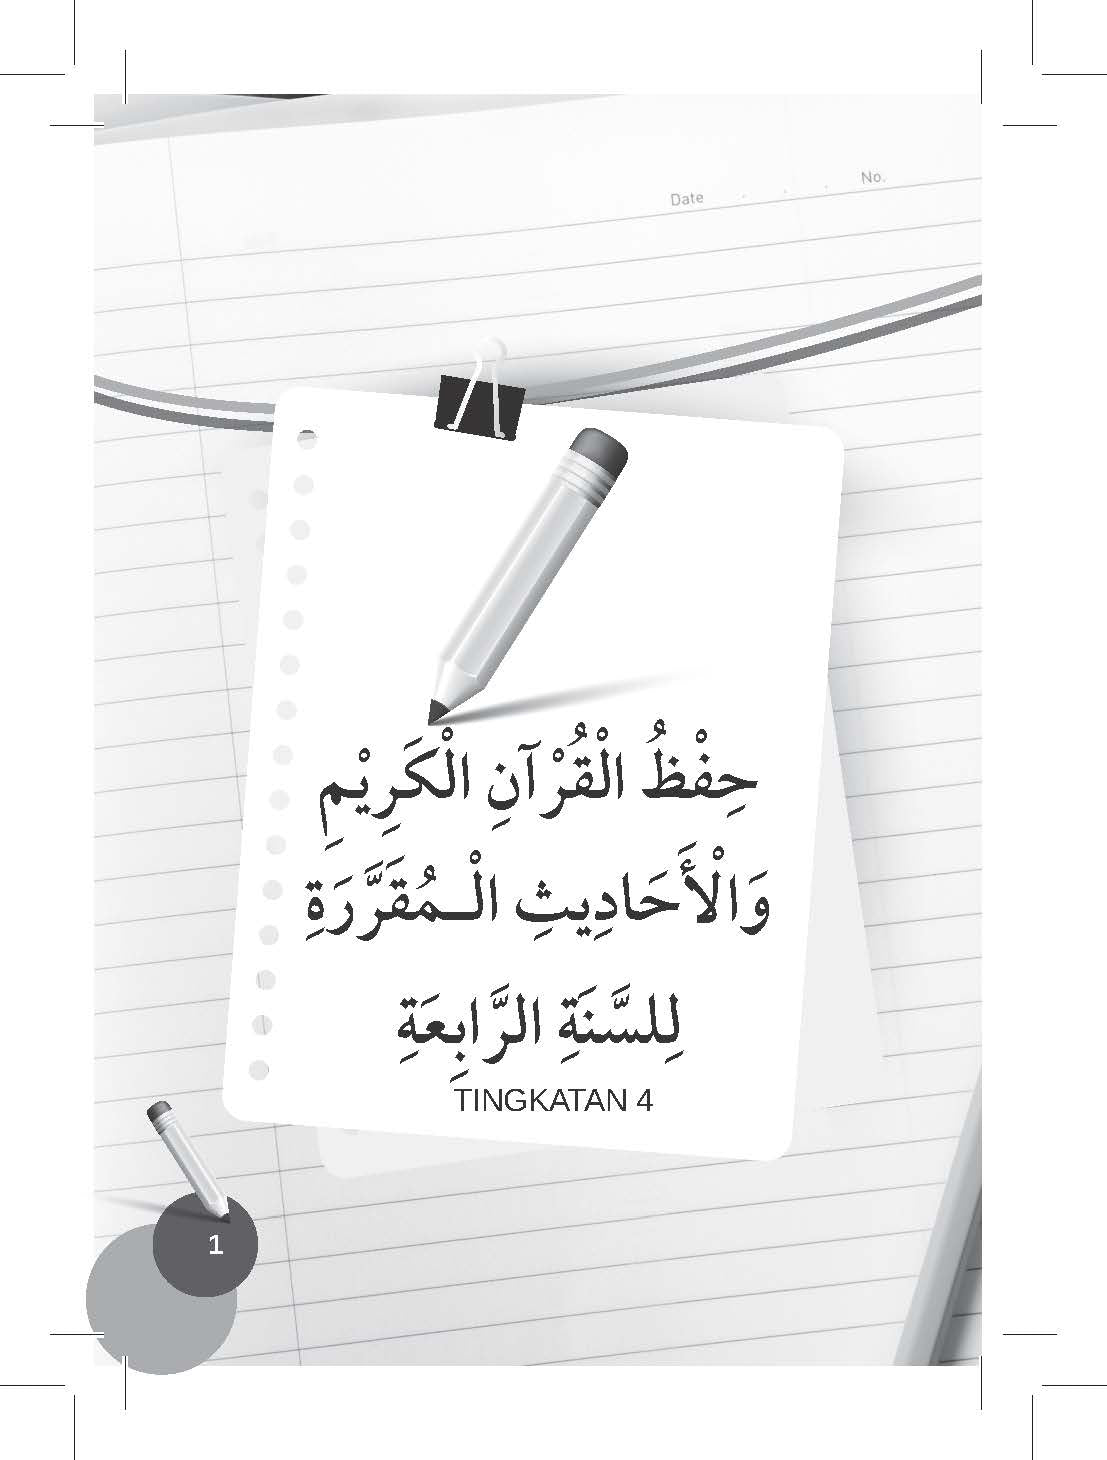 Date . . . No.
حِفْظُ الْقُرْآنِ الْكَرِيْمِ
وَالْأَحَادِيثِ الْـمُقَرَّرَةِ
لِلسَّنَةِ الرَّابِعَةِ
TINGKATAN 4
1